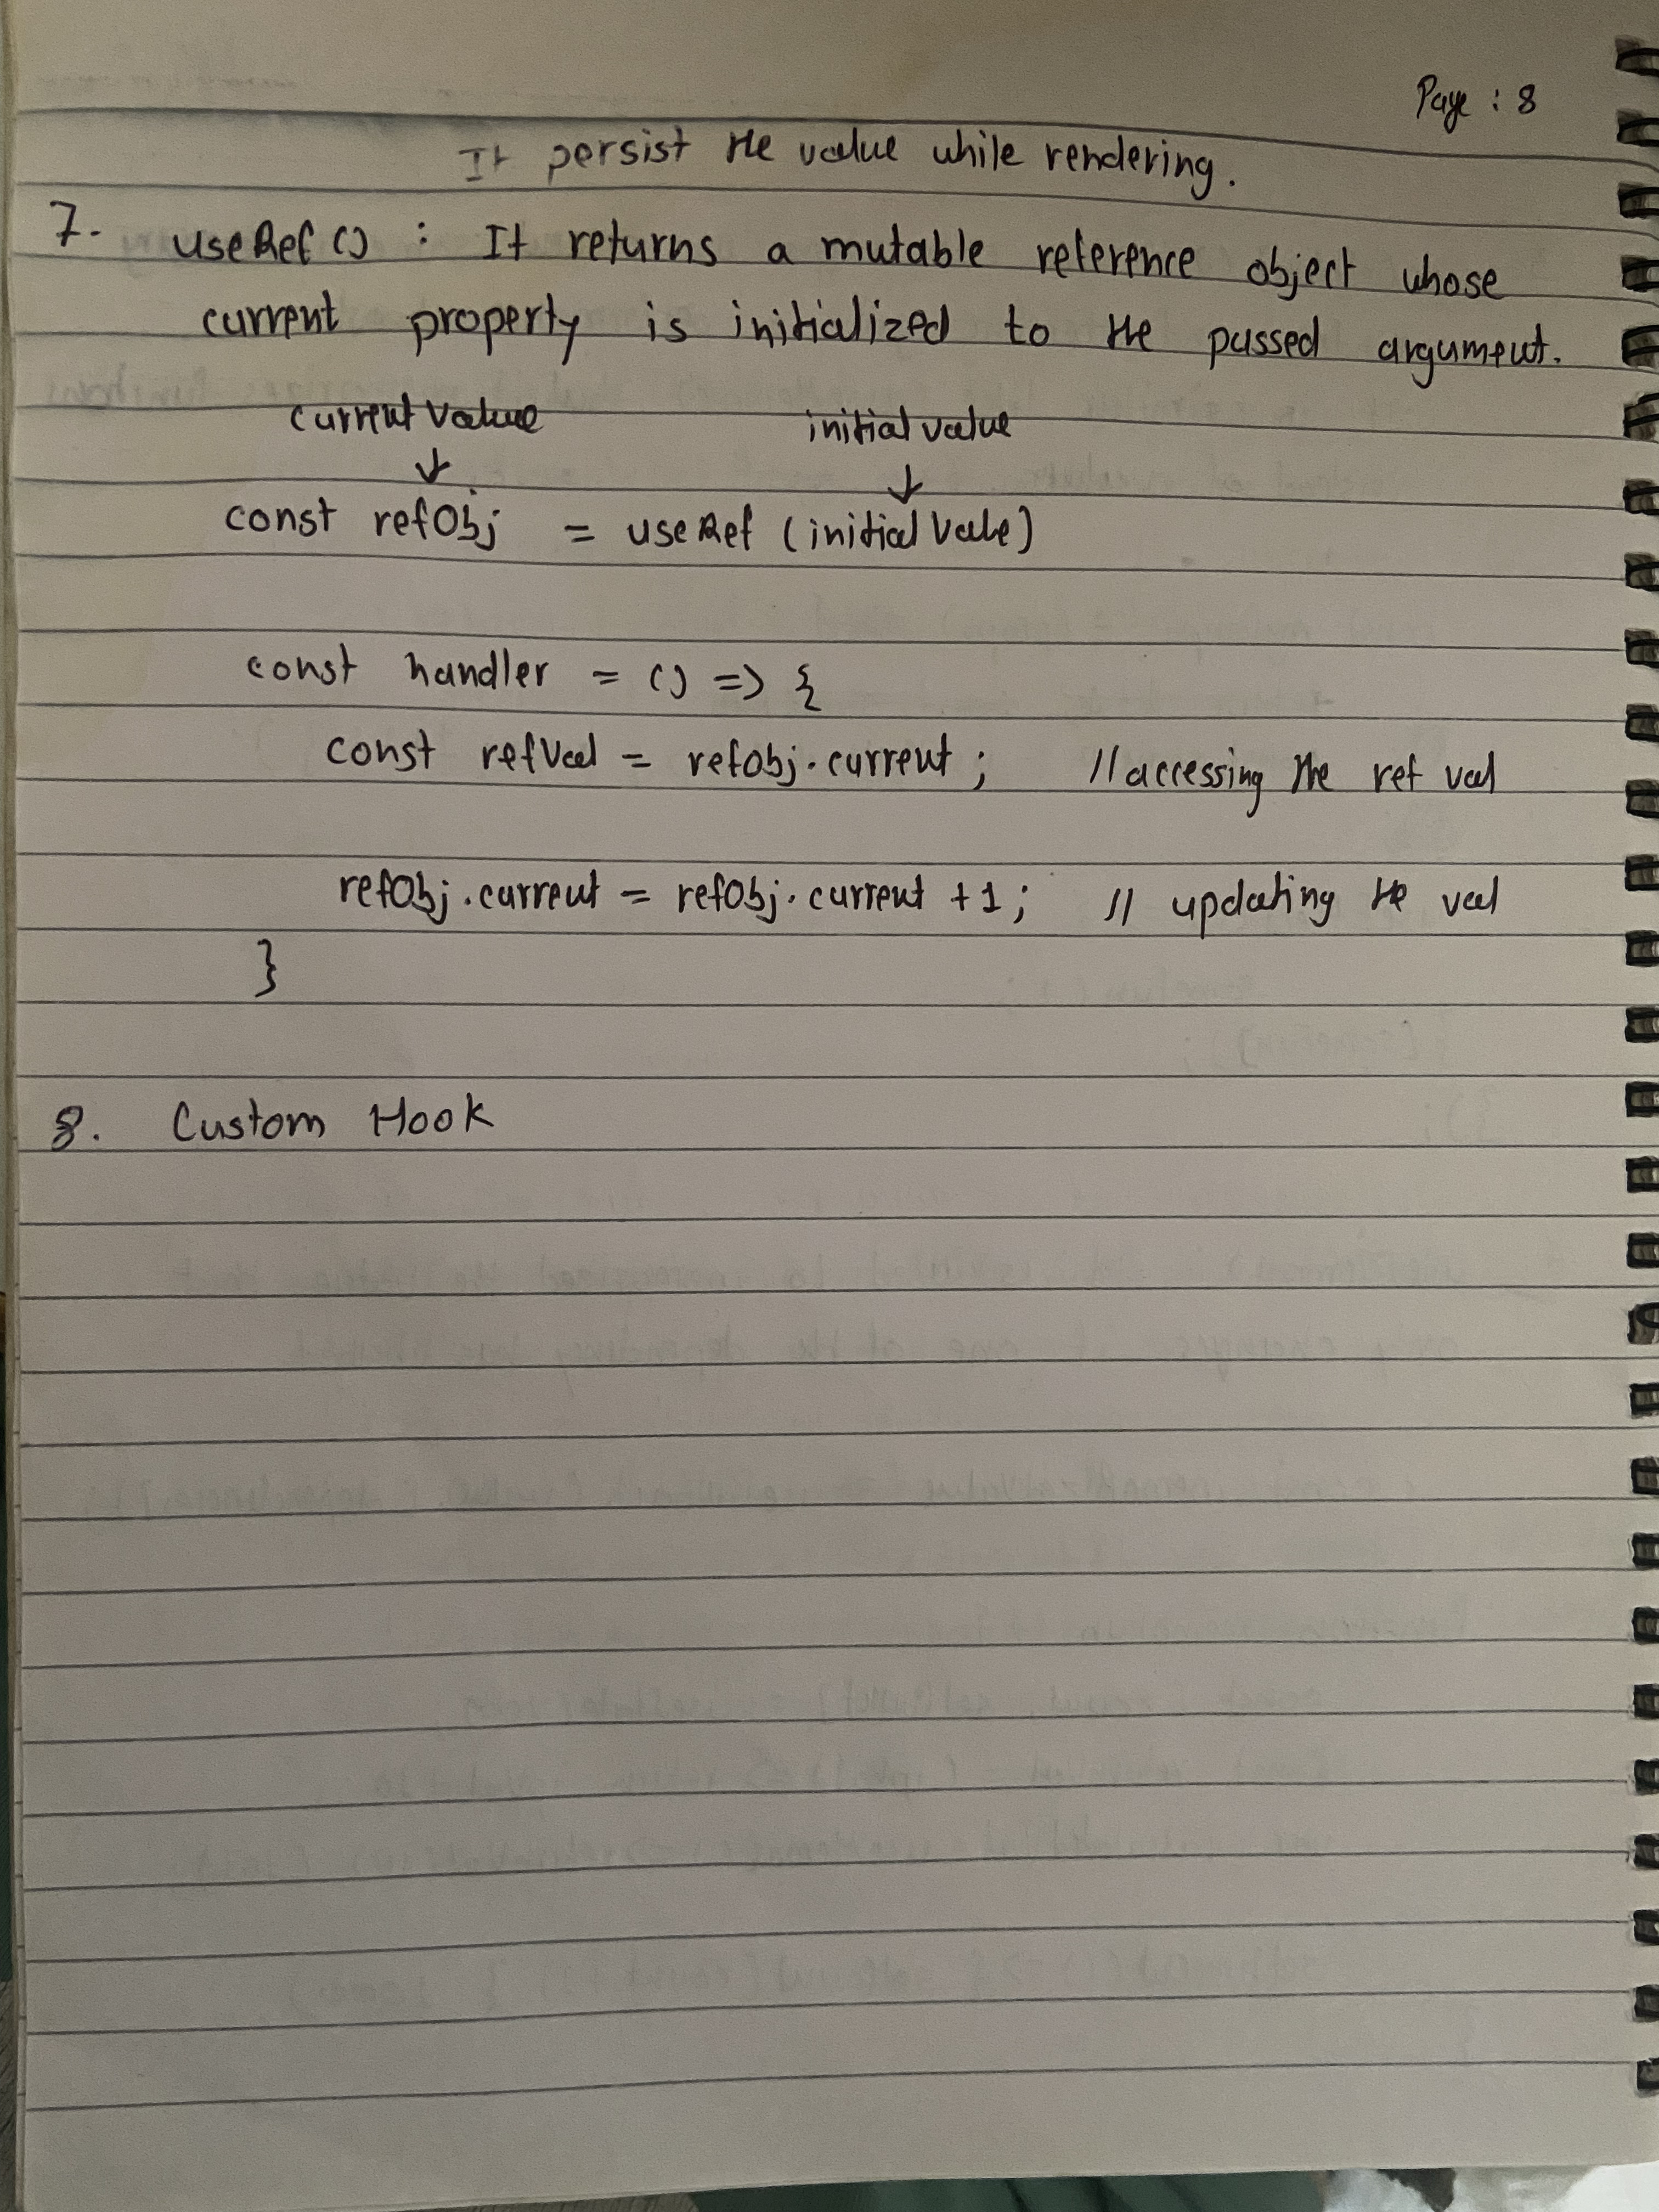 Page : 8
It persist the value while rendering.
7. useRef () : It returns a mutable reference object whose
current property is initialized to the passed argument.
current value initial value
↓ ↓
const refObj = useRef (initial Value)
const handler = () => {
const refVal = refObj.current ; // accessing the ref val
refObj.current = refObj.current + 1 ; // updating the val
}
8. Custom Hook